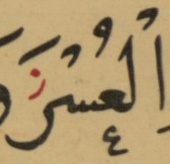 الْعُسْرَ وَ